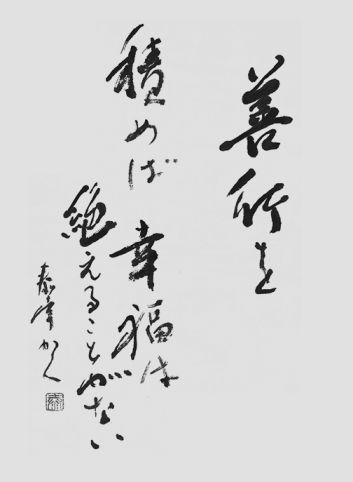 善所を
積めば
幸福は
絶えることがない
泰峯かく